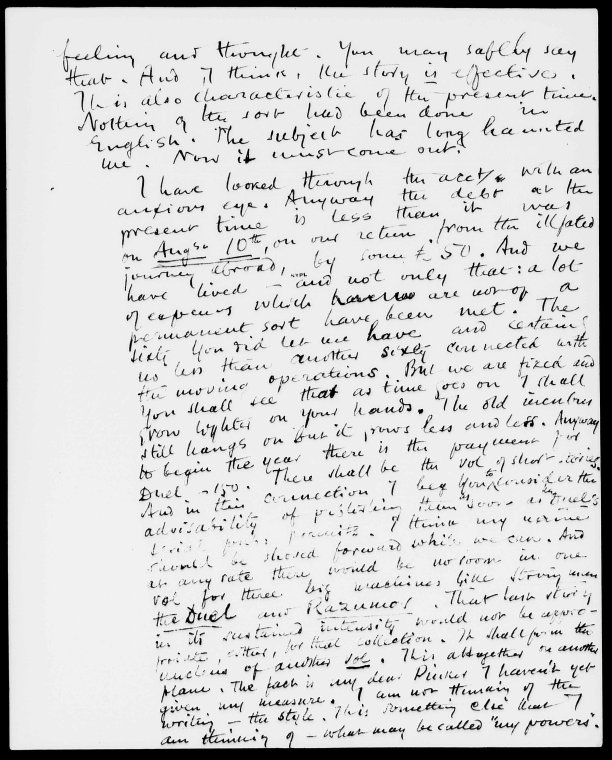 feeling and thought. You may safely say
that. And, I think, the story is effective.
It is also characteristic of the present time.
Nothing of the sort had been done in
English. The subject has long haunted
me. Now it must come out.
I have looked through the acct with an
anxious eye. Anyway the debt at the
present time is less than it was
on Augst 10th, on our return from the illfated
journey abroad, by some £50. And we
have lived – and not only that: a lot
of expenses which are not of a
permanent sort have been met. The
sixty you did let me have and certainly
no less than another sixty connected with
the moving operations. But we are fixed and
you shall see that as time goes on I shall
grow lighter on your hands. The old incubus
still hangs on but it grows less and less. Anyway
to begin the year there is the payment for
Duel – 150. There shall be the vol of short stories.
And in this connection I beg you to consider the
advisability of publishing them soon – as the Duel's
serial permits. I think my
should be shoved forward while we can. And
at any rate there would be no room in one
vol for three big machines like Strong man
the Duel and Razumov. That last story
in its sustained intensity would not be appro-
priate, either, for that collection. It shall form the
nucleus of another vol. This altogether on another
plane. The fact is my dear Pinker I haven't yet
given my measure. I am not thinking of the
writing – the style. It is something else that I
am thinking of – what may be called "my powers".